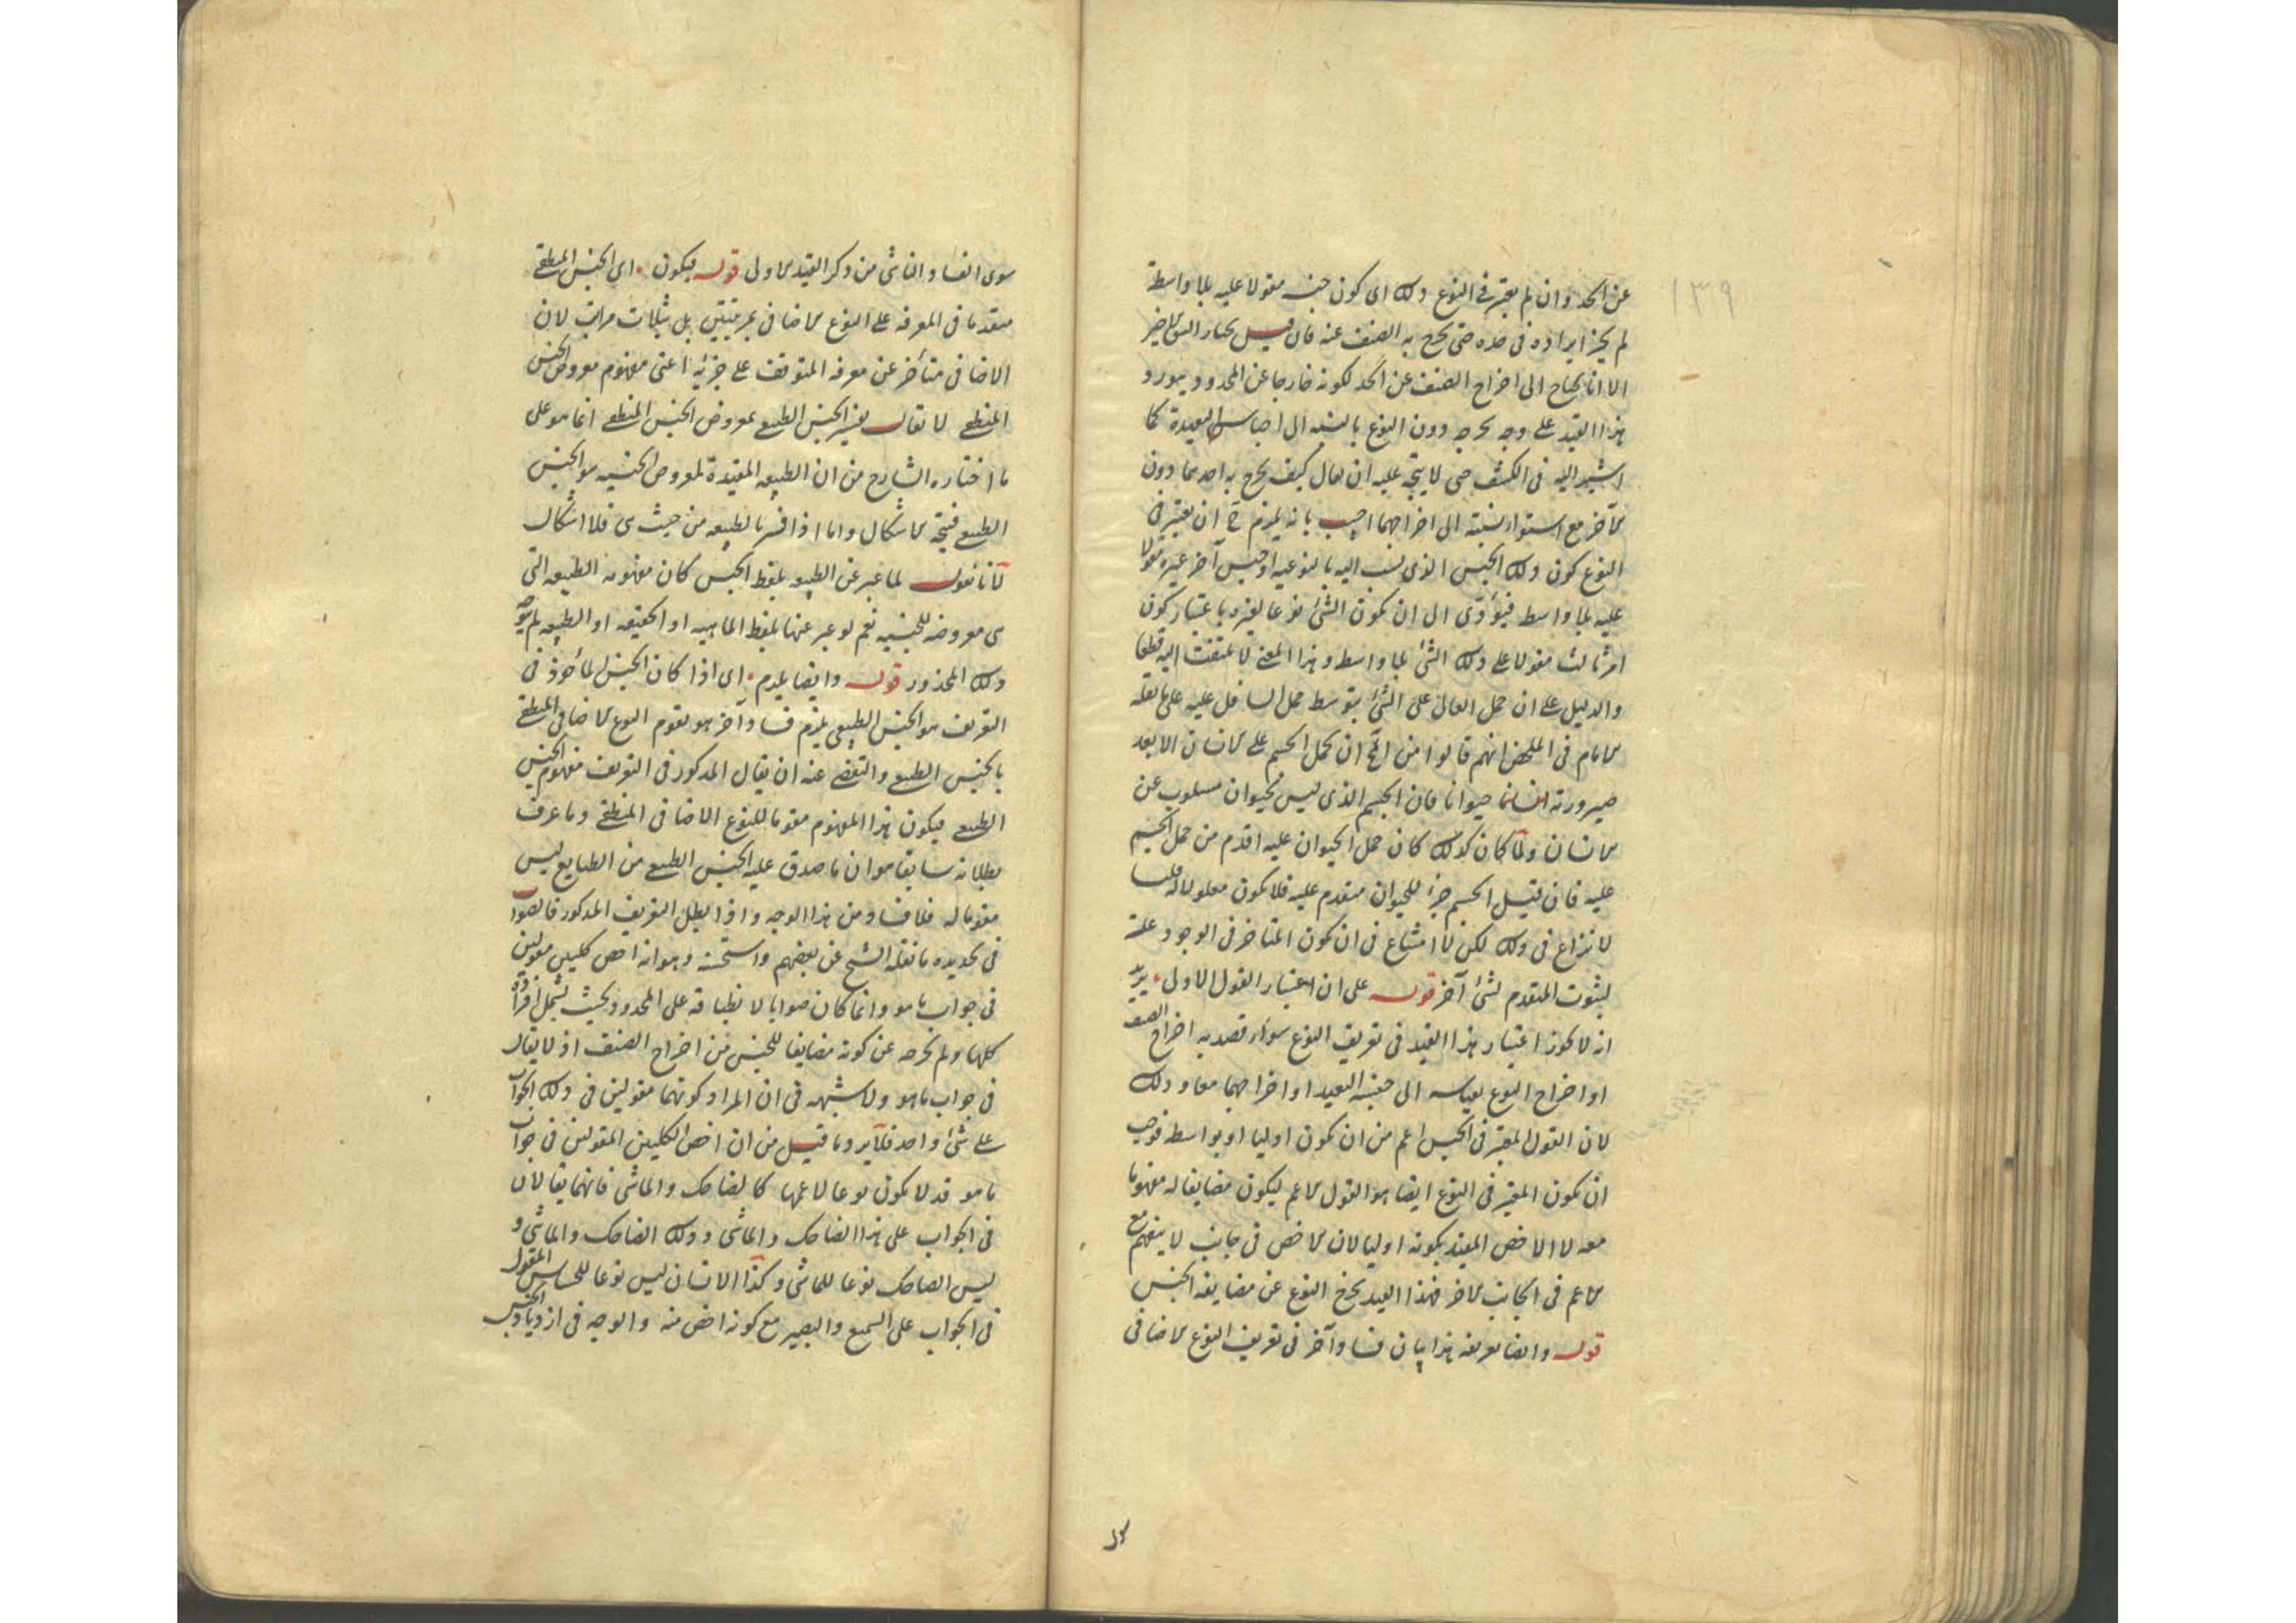 ١٣٩
عن الحد وان لم يعتبر فى النوع ذلك اى كون جنسه مقولا عليه بلا واسطة
لم يجز ايراده فى حده حتى يخرج به الصنف عنه فان قيل نختار الشق الاخير
الا انا نحتاج الى اخراج الصنف عن الحد لكونه خارجا عن المحدود ونورد
هذا القيد على وجه يخرجه دون النوع بالنسبة الى اجناسه البعيدة كما
اشير اليه فى الكشف حتى لا يتجه عليه ان يقال كيف يخرج به احدهما دون
الآخر مع استواء نسبته الى اخراجهما اجيب بانه يلزم ح ان يعتبر فى
النوع كون ذلك الجنس الذى نسب اليه بالنوعية او جنس آخر غيره مقولا
عليه بلا واسطة فيؤدى الى ان يكون الشئ نوعا لغيره باعتبار كون
امر ثالث مقولا على ذلك الشئ بلا واسطة وهذا المعنى لا يلتفت اليه قطعا
والدليل على ان حمل العالى على الشئ بتوسط حمل السافل عليه على ما نقله
الامام فى الملخص انهم قالوا من المح ان يحمل الجسم على الانسان الا بعد
صيرورته حيوانا فان الجسم الذى ليس بحيوان مسلوب عن
الانسان ولما كان كذلك كان حمل الحيوان عليه اقدم من حمل الجسم
عليه فان قيل الجسم جزء للحيوان متقدم عليه فلا يكون معلولا له قلنا
لا نزاع فى ذلك لكن لا امتناع فى ان يكون المتاخر فى الوجود علة
لثبوت المتقدم لشئ آخر قوله على ان اعتبار القول الاولى يريد
انه لا يجوز اعتبار هذا القيد فى تعريف النوع سواء قصد به اخراج الصنف
او اخراج النوع بقياسه الى جنسه البعيد او اخراجهما معا وذلك
لان القول المعتبر فى الجنس اعم من ان يكون اوليا او بواسطة فوجب
ان يكون المعتبر فى النوع ايضا هو القول الاعم ليكون مضايفا له مفهوما
معه لا الاخص المقيد بكونه اوليا لان الاخص فى جانب لا ينفهم مع
الاعم فى الجانب الاخر فهذا القيد يخرج النوع عن مضايفة الجنس
قوله وايضا تعريفه هذا بيان فساد آخر فى تعريف النوع الاضافى
سوى الفساد الناشى من ذكر القيد الاولى قوله فيكون اى الجنس المنطقى
متقدما فى المعرفة على النوع الاضافى بمرتبتين بل بثلاث مراتب لان
الاضافى متأخر عن معرفه المتوقف على جزئه اعنى مفهوم معروض الجنس
المنطقى لا يقال تفسير الجنس الطبيعى بمعروض الجنس المنطقى انما هو على
ما اختاره الشارح من ان الطبيعة المقيدة بمعروض الجنسية هو الجنس
الطبيعى فيتجه الاشكال واما اذا فسر بالطبيعة من حيث هى فلا اشكال
لانا نقول لما عبر عن الطبيعة بلفظ الجنس كان مفهومه الطبيعة التى
هى معروضه للجنسية نعم لو عبر عنها بلفظ الماهية او الحقيقة او الطبيعة لم يتوجه
ذلك المحذور قوله وايضا يلزم اى اذا كان الجنس المأخوذ فى
التعريف هو الجنس الطبيعى يلزم فساد آخر هو تقوم النوع الاضافى المنطقى
بالجنس الطبيعى والتفصى عنه ان يقال المذكور فى التعريف مفهوم الجنس
الطبيعى فيكون هذا المفهوم مقوما للنوع الاضافى المنطقى وما عرف
بطلانه سابقا هو ان ما صدق عليه الجنس الطبيعى من الطبايع ليس
مقوما له فلا فساد من هذا الوجه واذا بطل التعريف المذكور فالصواب
فى تحديده ما نقله الشيخ عن بعضهم واستحسنه وهو انه اخص كليين مقولين
فى جواب ما هو وانما كان صوابا لانطباقه على المحدود بحيث يشمل افراده
كلها ولم يخرجه عن كونه مضايفا للجنس من اخراج الصنف اذ لا يقال
فى جواب ما هو ولا شبهة فى ان المراد كونهما مقولين فى ذلك الجواب
على شئ واحد فلا يرد ما قيل من ان اخص الكليين المقولين فى جواب
ما هو قد لا يكون نوعا لاعمهما كالضاحك والماشى فانهما يقالان
فى الجواب على هذا الضاحك والماشى وذلك الضاحك والماشى و
ليس الضاحك نوعا للماشى وكذا الانسان ليس نوعا للحساس المقول
فى الجواب على السميع والبصير مع كونه اخص منه والوجه فى ازدياد الجنس